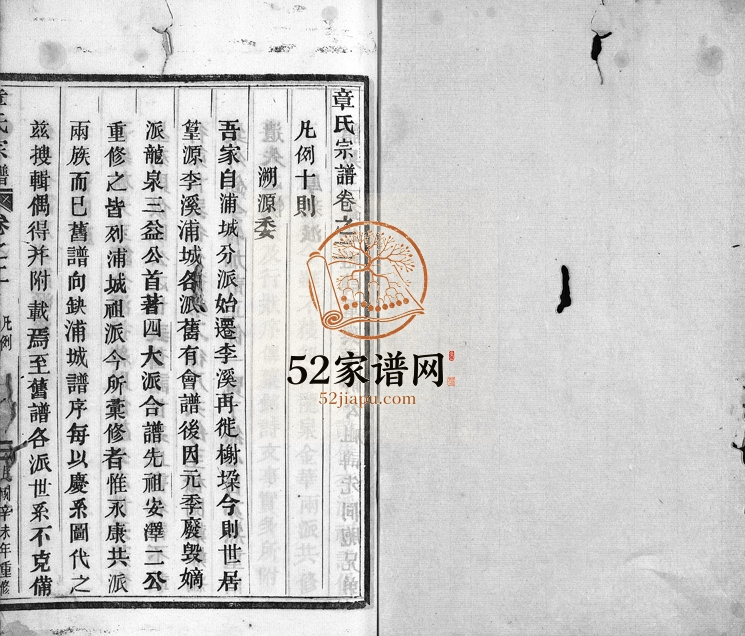 章氏宗譜卷之二
凡例十則
溯源委
吾家自浦城分派始遷李溪再徙榭垛今則世居
篁源李溪浦城各派舊有會譜後因元季廢毀嫡
派龍泉三益公首著四大派合譜先祖安澤二公
重修之皆列浦城祖派今所彙修者惟永康共派
兩族而已舊譜向缺浦城譜序每以慶系圖代之
茲搜輯偶得并附載焉至舊譜各派世系不克備
章氏宗譜 卷之二 凡例 民國辛未年重修
52家谱网
52jiapu.com